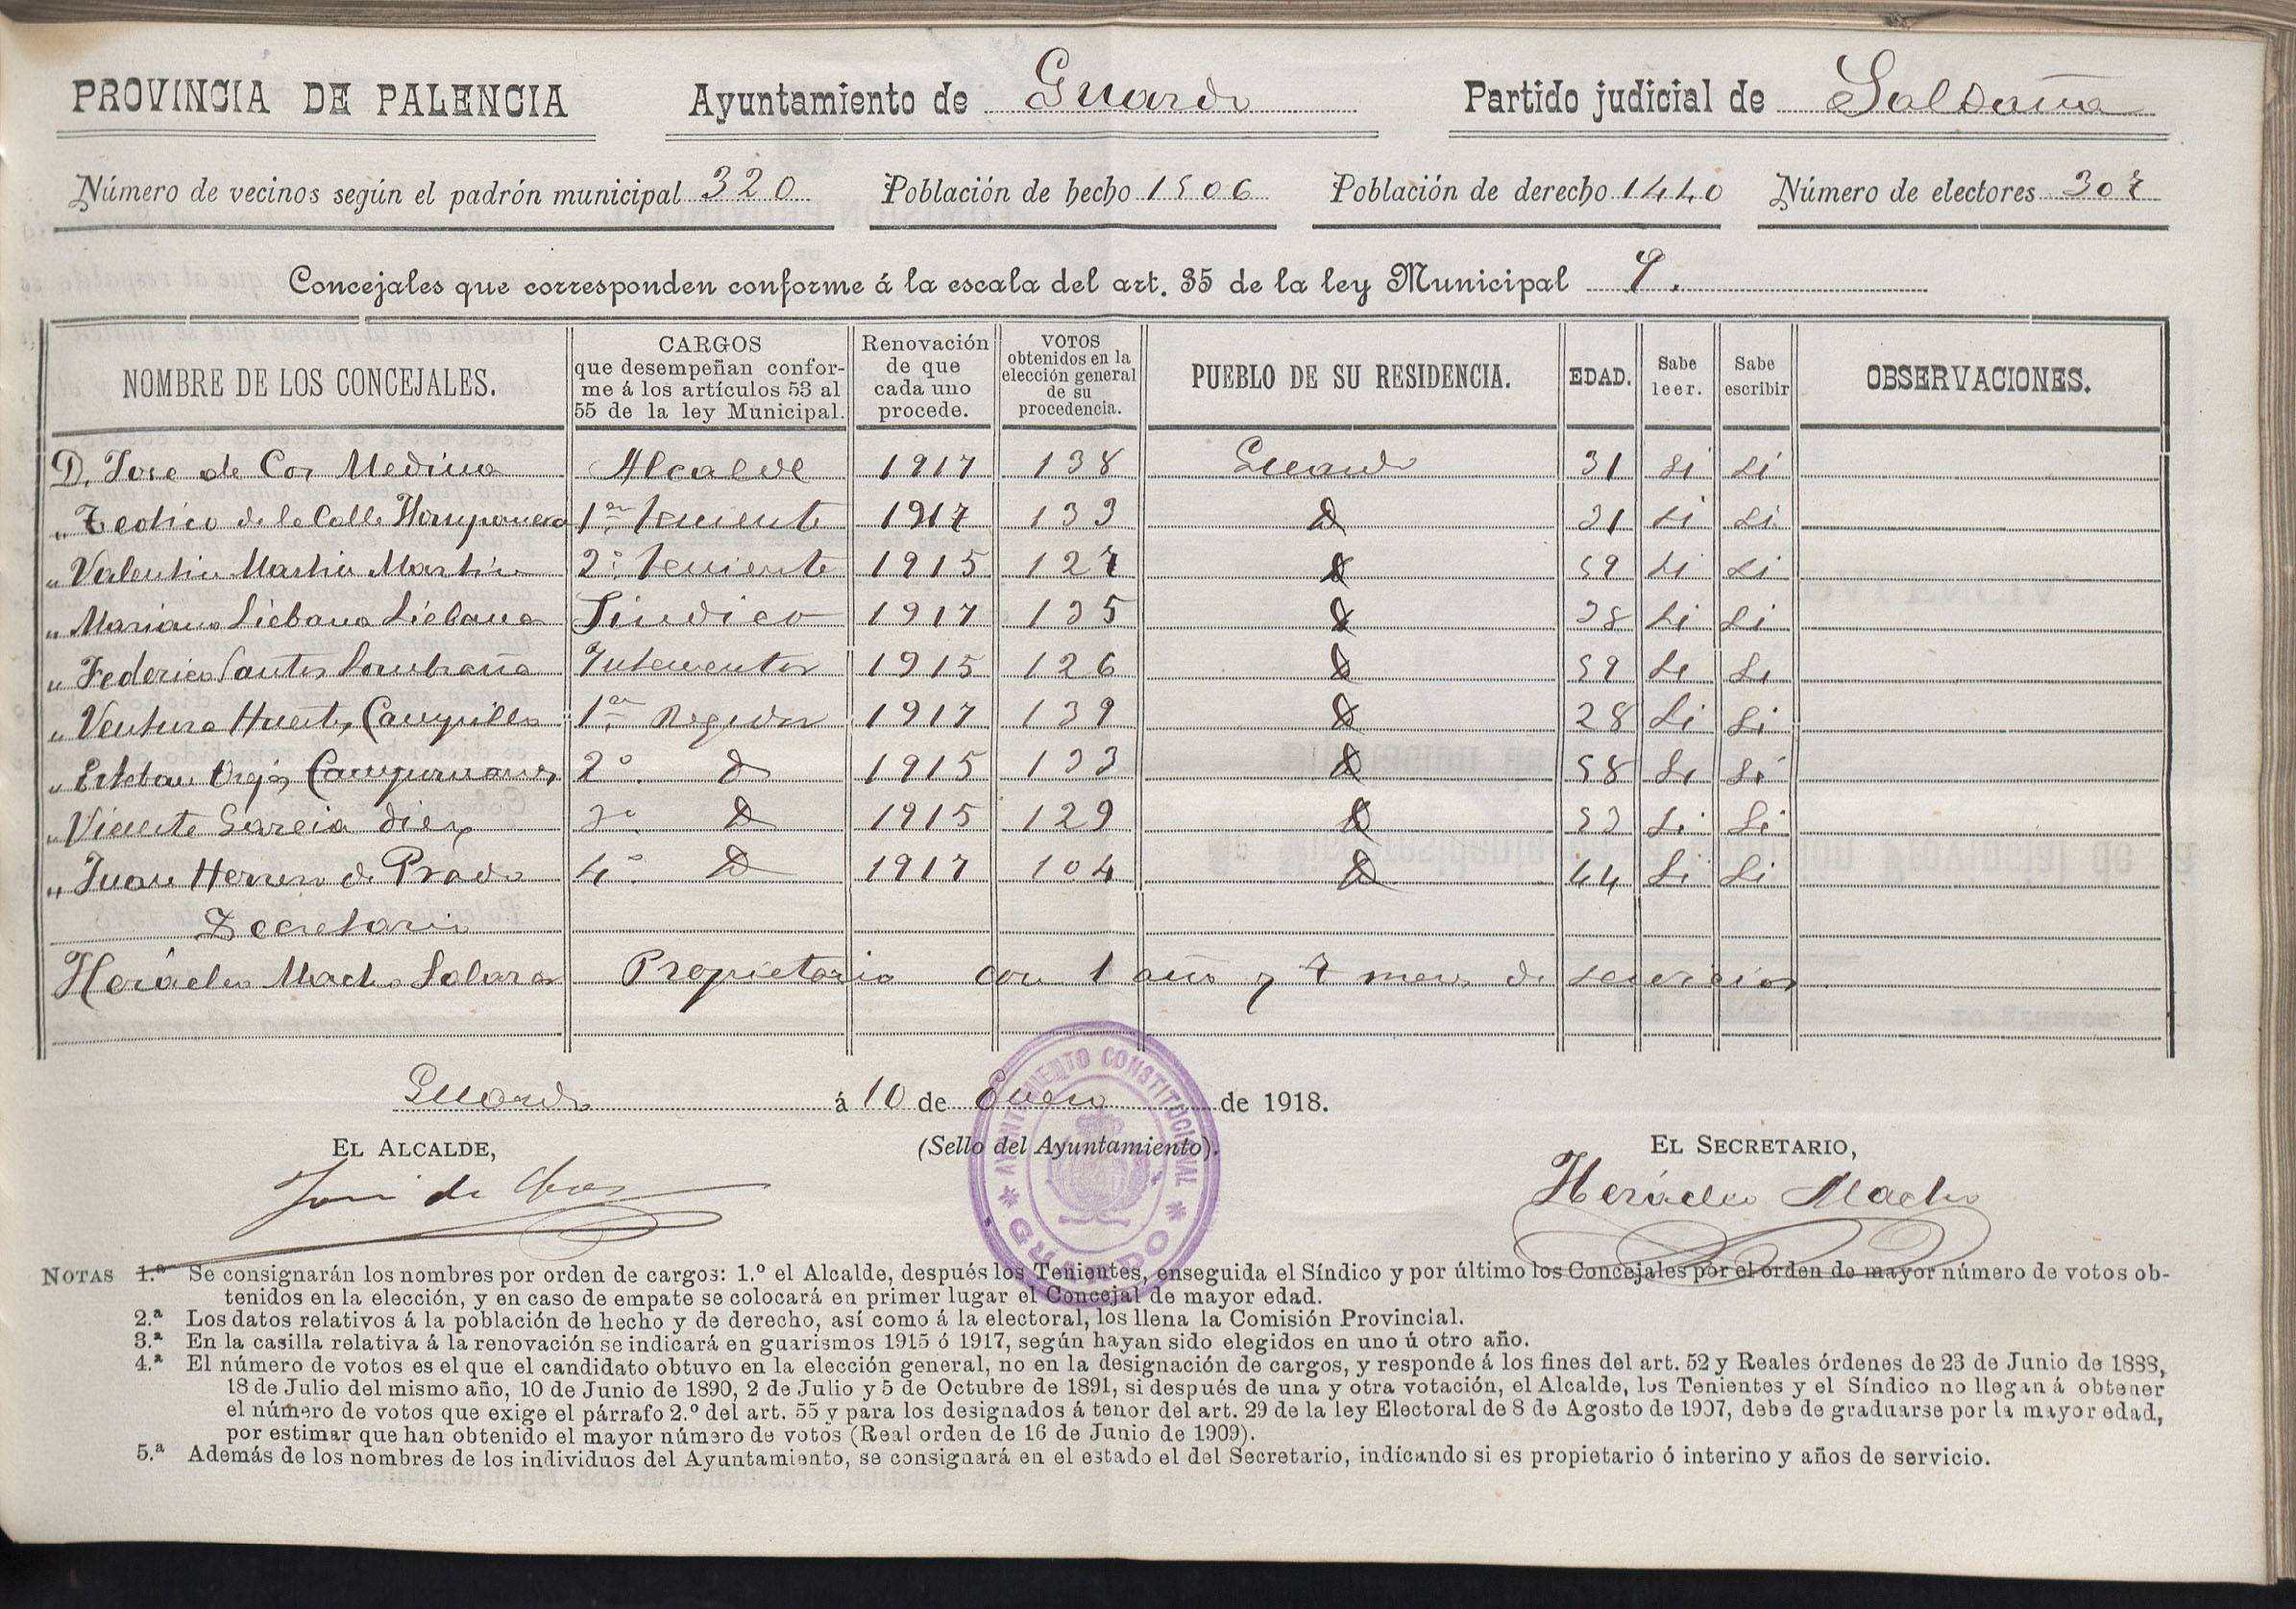 PROVINCIA DE PALENCIA Ayuntamiento de Guardo Partido judicial de Saldaña
Número de vecinos según el padrón municipal 320 Población de hecho 1506 Población de derecho 1440 Número de electores 307
Concejales que corresponden conforme á la escala del art. 35 de la ley Municipal 9.
NOMBRE DE LOS CONCEJALES. CARGOS que desempeñan conforme á los artículos 53 al 55 de la ley Municipal. Renovación de que cada uno procede. VOTOS obtenidos en la elección general de su procedencia. PUEBLO DE SU RESIDENCIA. EDAD. Sabe leer. Sabe escribir OBSERVACIONES.
D. Jose de Cos Medina Alcalde 1917 138 Guardo 31 Si Si
" de la Calle 1er Teniente 1917 133 D 31 Si Si
" Valentin Martin Martin 2º Teniente 1915 127 D 59 Si Si
" Mariano Liebana Liebana Sindico 1917 135 D 38 Si Si
" Federico Santos Interventor 1915 126 D 59 Si Si
" Ventura Huerta Campillo 1er Regidor 1917 139 D 28 Si Si
" Esteban 2º D 1915 133 D 58 Si Si
" Vicente Garcia diez 3º D 1915 129 D 53 Si Si
" Juan Herrero de Prado 4º D 1917 104 D 44 Si Si
Secretario
Heráclio Macho Propietario con 1 año y 7 meses de servicios
Guardo á 10 de Enero de 1918.
EL ALCALDE, (Sello del Ayuntamiento). EL SECRETARIO,
José de Cos Heráclio Macho
AYUNTAMIENTO CONSTITUCIONAL * GUARDO *
NOTAS 1.ª Se consignarán los nombres por orden de cargos: 1.º el Alcalde, después los Tenientes, enseguida el Síndico y por último los Concejales por el orden de mayor número de votos ob-
tenidos en la elección, y en caso de empate se colocará en primer lugar el Concejal de mayor edad.
2.ª Los datos relativos á la población de hecho y de derecho, así como á la electoral, los llena la Comisión Provincial.
3.ª En la casilla relativa á la renovación se indicará en guarismos 1915 ó 1917, según hayan sido elegidos en uno ú otro año.
4.ª El número de votos es el que el candidato obtuvo en la elección general, no en la designación de cargos, y responde á los fines del art. 52 y Reales órdenes de 23 de Junio de 1888,
18 de Julio del mismo año, 10 de Junio de 1890, 2 de Julio y 5 de Octubre de 1891, si después de una y otra votación, el Alcalde, los Tenientes y el Síndico no llegan á obtener
el número de votos que exige el párrafo 2.º del art. 55 y para los designados á tenor del art. 29 de la ley Electoral de 8 de Agosto de 1907, debe de graduarse por la mayor edad,
por estimar que han obtenido el mayor número de votos (Real orden de 16 de Junio de 1909).
5.ª Además de los nombres de los individuos del Ayuntamiento, se consignará en el estado el del Secretario, indicando si es propietario ó interino y años de servicio.